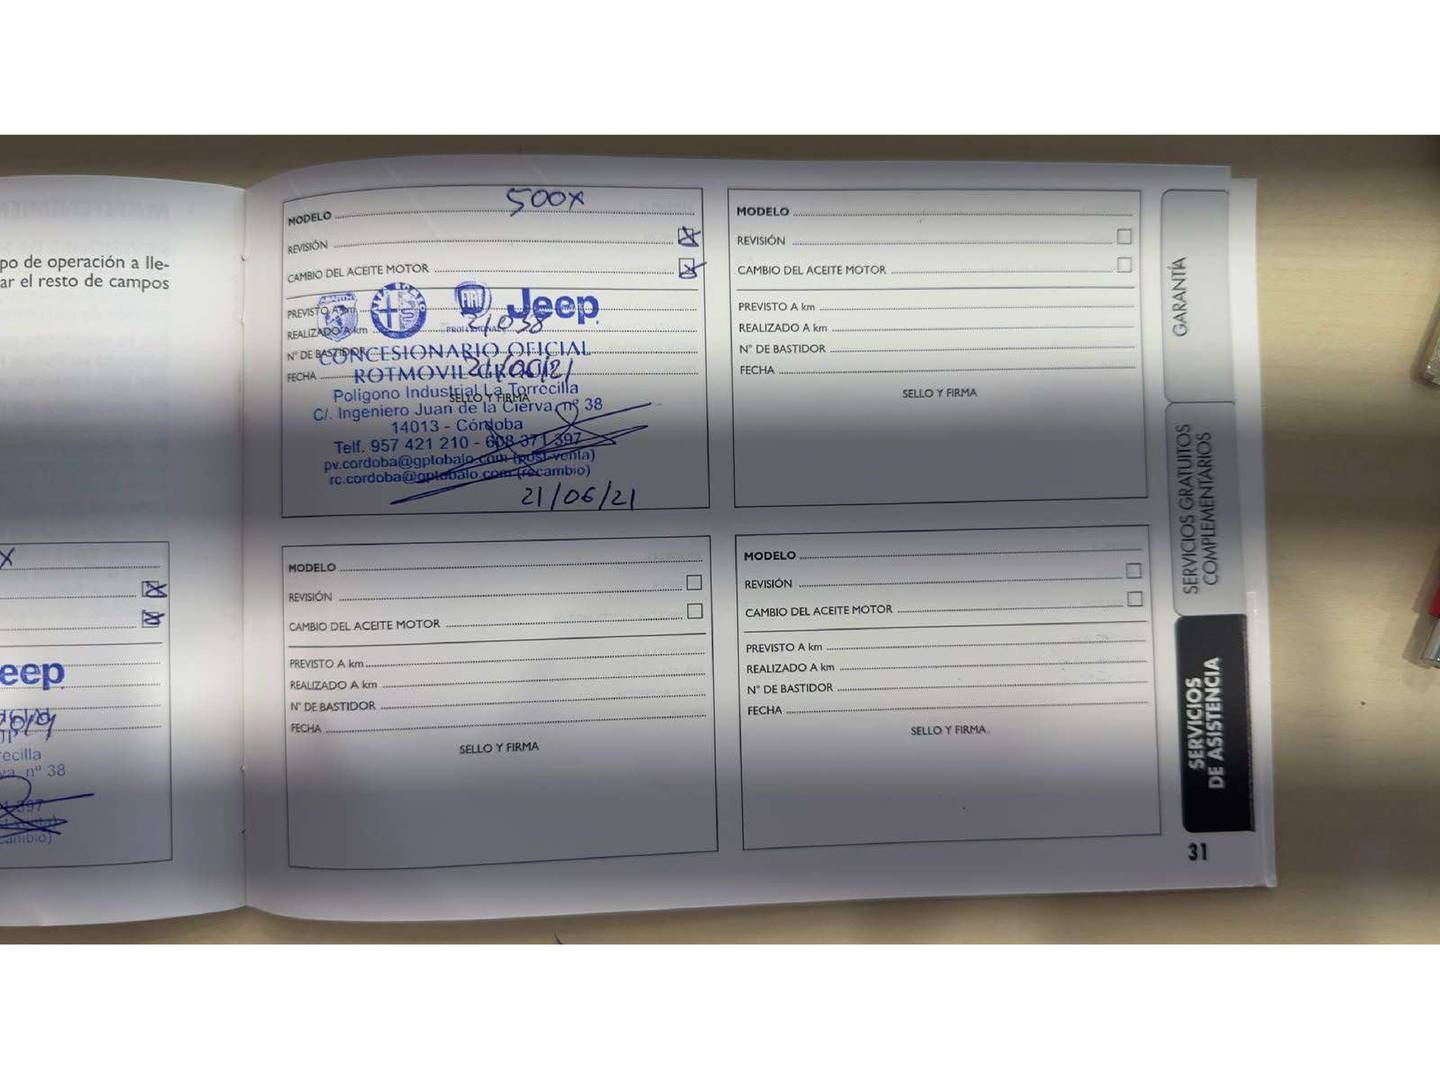 po de operación a lle-
ar el resto de campos
X
eep
ecilla
va, nº 38
MODELO 500X
REVISIÓN
CAMBIO DEL ACEITE MOTOR
FIAT
Jeep
PREVISTO A km
REALIZADO A km 21,038
Nº DE BASTIDOR
CONCESIONARIO OFICIAL
FECHA 21/06/21
ROTMOVIL
Poligono Industrial La Torrecilla
SELLO Y FIRMA
C/. Ingeniero Juan de la Cierva, nº 38
14013 - Córdoba
Telf. 957 421 210 - 608 371 397
pv.cordoba@gptobalo.com (post-venta)
rc.cordoba@gptobalo.com (recambio)
21/06/21
MODELO
REVISIÓN
CAMBIO DEL ACEITE MOTOR
PREVISTO A km
REALIZADO A km
Nº DE BASTIDOR
FECHA
SELLO Y FIRMA
MODELO
REVISIÓN
CAMBIO DEL ACEITE MOTOR
PREVISTO A km
REALIZADO A km
Nº DE BASTIDOR
FECHA
SELLO Y FIRMA
MODELO
REVISIÓN
CAMBIO DEL ACEITE MOTOR
PREVISTO A km
REALIZADO A km
Nº DE BASTIDOR
FECHA
SELLO Y FIRMA
GARANTÍA
SERVICIOS GRATUITOS
COMPLEMENTARIOS
SERVICIOS
DE ASISTENCIA
31